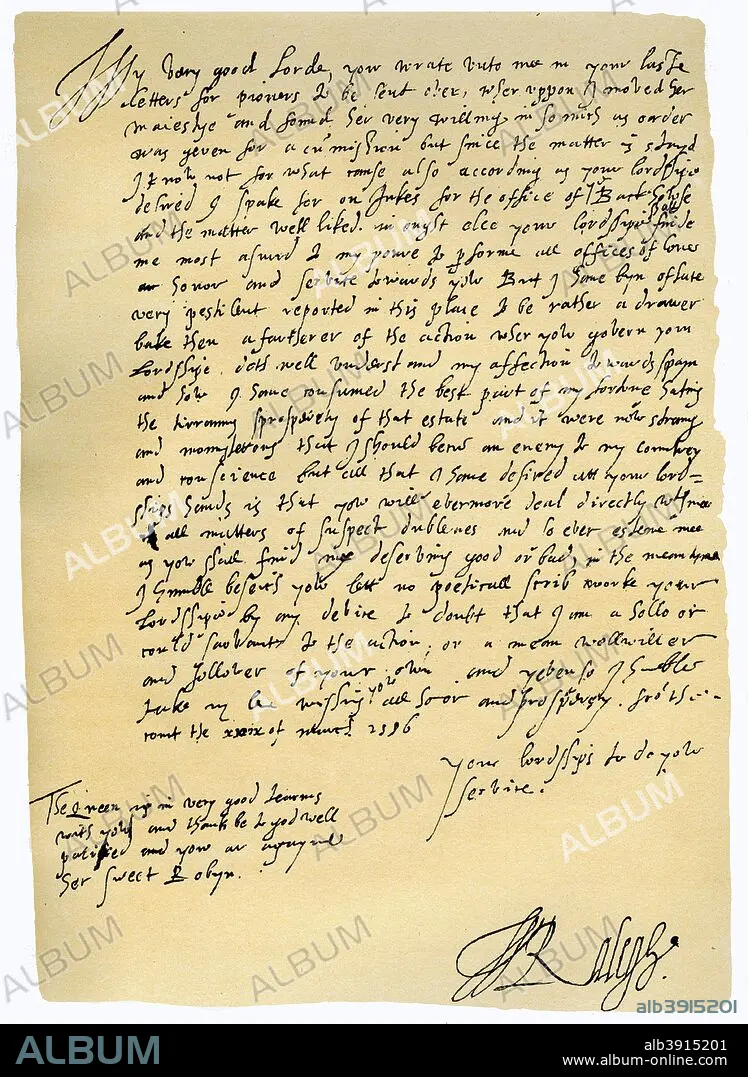 My very good Lorde, yow wrate vnto mee in your laste
letters for pioners to be sent over, wher vppon I moved her
maiestye and found her very willing in so mich as order
was geven for a cumission but since the matter is stayd
I know not for what cause also according as your lordshipe
desired I spake for on Jukes for the office of ye Back House
and the matter well liked. in ought elce your lordshipe shall finde
me most asured to my poure to performe all offices of love
honor and service towards yow But I have byn of late
very pestilent reported in this place to be rather a drawer
bake then a fartherer of the action wher yow govern your
Lordshipe doth well vnderstand my affection towards spain
and how I have consumed the best part of my fortune hating
the tirranus sprosperety of that estate and it were now strang
and monsterous that I should becum an enemy to my countrey
and conscience but all that I have desired att your lord=
ships hands is that yow will evermore deal directly with mee
all matters of suspect dublenes and so ever esteme mee
as yow shall find mee deserving good or bad, in the mean tyme
I humble beseich yow lett no poeticall scrib worke your
Lordshipe by any device to doubt that I am a hollo or
could sarvant to the action, or a mean wellwiller
and follover of your own and yeven so I humble
take my leve wishing yow all honor and prosperety. fro the
court the xxix of march 1586
Your lordships to do yow
service.
The Queen is in very good tearms
with yow and thanks be to god well
pacified and yow ar agayne
her sweet Robyn.
W Ralegh.
ALBUM
alb3915201
ALBUM
alb3915201
www.album-online.com